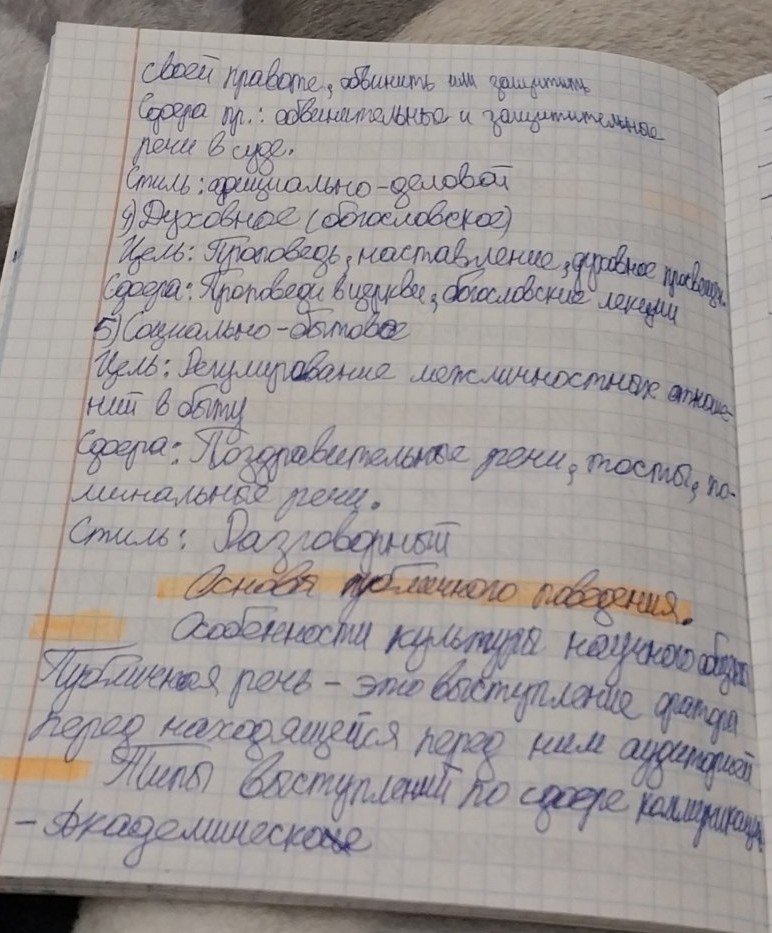 своей правоте, обвинить или защитить
Сфера пр.: обвинительные и защитительные
речи в суде.
Стиль: официально-деловой
4) Духовное (богословское)
Цель: Проповедь, наставление, духовное просвещ.
Сфера: Проповеди в церкви, богословские лекции
5) Социально-бытовое
Цель: Регулирование межличностных отноше-
ний в быту
Сфера: Поздравительные речи, тосты, по-
минальные речи.
Стиль: Разговорный
Основы публичного поведения.
Особенности культуры научного общения
Публичная речь - это выступление оратора
перед находящейся перед ним аудиторией
Типы выступлений по сфере коммуникации
- Академическое